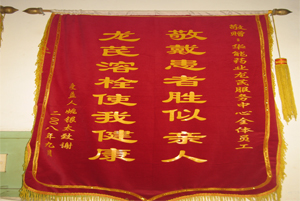 敬赠:华能药业龙芪服务中心全体员工
敬戴患者胜似亲人
龙芪溶栓使我健康
受益人姚根太致谢
二〇〇八年九月